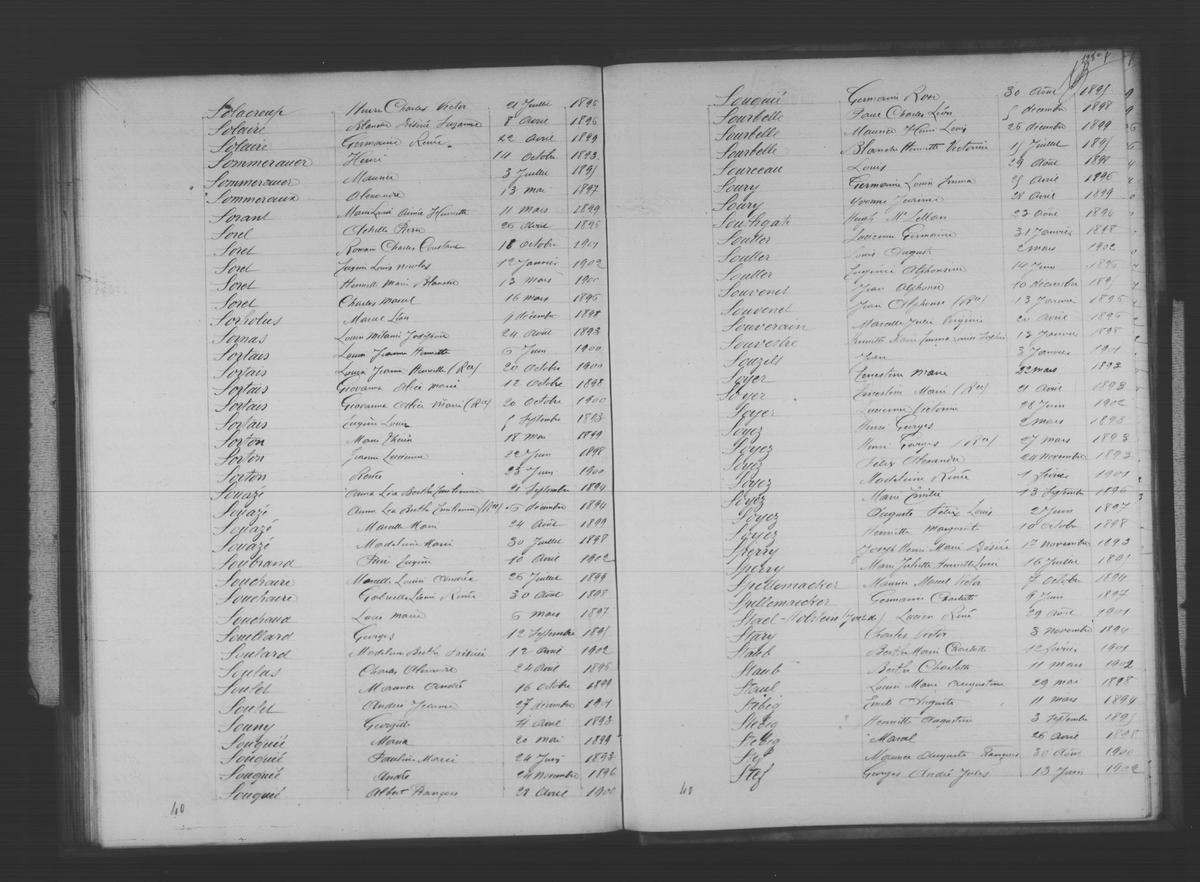 Solacroup Pierre Charles Victor 21 Juillet 1895
Solaire Blanche Désirée Suzanne 8 Avril 1896
Solaire Germaine Renée 22 Avril 1899
Sommerauer Henri 14 Octobre 1893
Sommerauer Maurice 3 Juillet 1895
Sommereux Alexandre 13 mai 1897
Sorant Marie Louise Aimée Henriette 11 Mars 1899
Sorel Achille Pierre 26 Avril 1895
Sorel Romain Charles 18 octobre 1901
Sorel Eugène Louis 12 Janvier 1902
Soret Henriette Marie Blanche 13 Mars 1900
Soret Charles Marcel 16 mars 1896
Marcel Léon 9 décembre 1898
Sornas Louise Mélanie Joséphine 24 Août 1893
Sortais Louisa Jeanne Henriette 6 Juin 1900
Sortais Louisa Jeanne Henriette (Rec) 20 octobre 1900
Sortais Giovanna Alice Marie 12 Octobre 1898
Sortais Giovanna Alice Marie (Rec) 20 Octobre 1900
Sortais Eugène Louis 5 Septembre 1893
Sorton Marie 18 mai 1899
Sorton Jeanne Lucienne 22 Juin 1898
Sorton Renée 23 Juin 1900
Souazé Anna Léa Berthe Emilienne 21 Septembre 1894
Souazé Anna Léa Berthe Emilienne (Rec) 6 décembre 1894
Souazé Marcelle Marie 24 Août 1899
Souazé Madeleine Marie 30 Juillet 1898
Soubrand Eugène 10 Avril 1902
Souchaire Marcelle Louise Andréa 26 Juillet 1899
Souchaire Gabrielle Louise Renée 30 Août 1898
Souchaud Louis Marie 6 mars 1897
Souillard Georges 12 Septembre 1895
Soulard Madeleine Berthe Désirée 12 Avril 1902
Soulas Charles Alexandre 24 Avril 1895
Soulet Maurice André 16 octobre 1899
Soulet Andrée Jeanne 27 décembre 1901
Souny Georgette 4 Avril 1893
Souquié Maria 20 mai 1899
Souquié Pauline Marie 24 Juin 1893
Souquié André 24 Novembre 1896
Souquié Albert François 28 Avril 1900
40
Souquié Germaine Rose 30 Août 1895
Sourbelle Pierre Charles Léon 5 décembre 1898
Sourbelle Maurice Henri Louis 26 décembre 1899
Sourbelle Blanche Henriette Victorine 15 Juillet 1895
Sourceau Louis 29 Août 1899
Soury Germaine Louise Emma 25 Avril 1896
Soury Yvonne Jeanne 28 Avril 1899
Southgate Hugh Mc Lellan 23 Août 1896
Soutter Lucienne Germaine 31 Janvier 1898
Soutter Louis Auguste 2 mars 1902
Soutter Eugénie Alphonsine 14 Juin 1896
Souvenet Jean Alphonse 10 décembre 1895
Souvenet Jean Alphonse (Rec) 13 Janvier 1896
Souverain Marcelle Julie Virginie 20 Avril 1895
Souvestre Henriette Marie Emma Louise Sophie 13 Janvier 1898
Souzels Jean 3 Janvier 1901
Soyer Ernestine Marie 22 mars 1893
Soyer Ernestine Marie (Rec) 21 Avril 1893
Soyer Lucienne Victorine 28 Juin 1902
Soyez Henri Georges 2 mars 1893
Soyez Henri Georges (Rec) 27 mars 1893
Soyez Félix Alexandre 24 novembre 1893
Soyez Madeleine Renée 1 février 1901
Soyez Marie Emilie 13 Septembre 1896
Soyez Auguste Félix Louis 2 Juin 1897
Soyez Henriette Marguerite 10 octobre 1898
Sperry Joseph Henri Marie Désiré 17 novembre 1893
Sperry Marie Juliette Henriette 16 Juillet 1895
Spellemaecker Maurice Marcel Victor 7 octobre 1894
Spellemaecker Germaine Charlotte 9 Juin 1897
Stael-Holstein Lucien René 29 Août 1901
Stary Charles Victor 3 novembre 1894
Staub Berthe Marie Charlotte 12 février 1901
Staub Berthe Charlotte 11 mars 1902
Staul Louise Marie Augustine 29 mai 1898
Stebig Emile Auguste 11 mars 1894
Stebig Henriette Augustine 3 Septembre 1895
Stebig Marcel 26 Avril 1898
Stef Maurice Auguste François 30 Août 1900
Stef Georges André Jules 13 Juin 1902
40